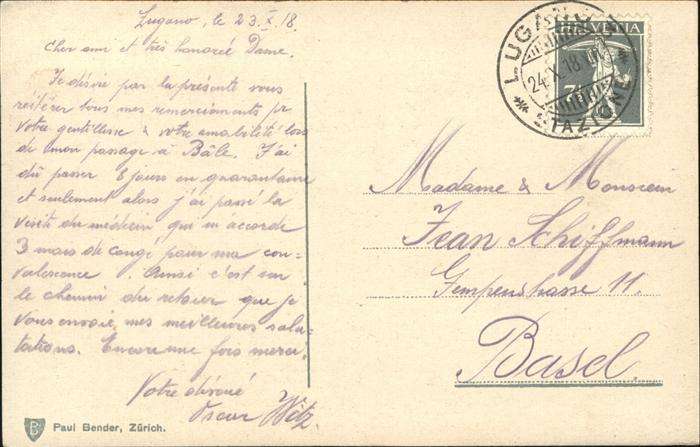 Lugano, le 23.X.18.
Cher ami et très honorée Dame.
Je désire par la présente vous
réitérer tous mes remerciements pr
votre gentillesse & votre amabilité lors
de mon passage à Bâle. J'ai
dû passer 8 jours en quarantaine
et seulement alors j'ai passé la
visite du médecin qui m'accorde
3 mois de congé pour ma con-
valescence. Ainsi c'est sur
le chemin du retour que je
vous envoie mes meilleures salu-
tations. Encore une fois merci.
Votre dévoué
Oscar
Paul Bender, Zürich.
HELVETIA
7½
LUGANO
24.X.18
STAZIONE
Madame & Monsieur
Jean Schiffmann
Gempenstrasse 11.
Basel